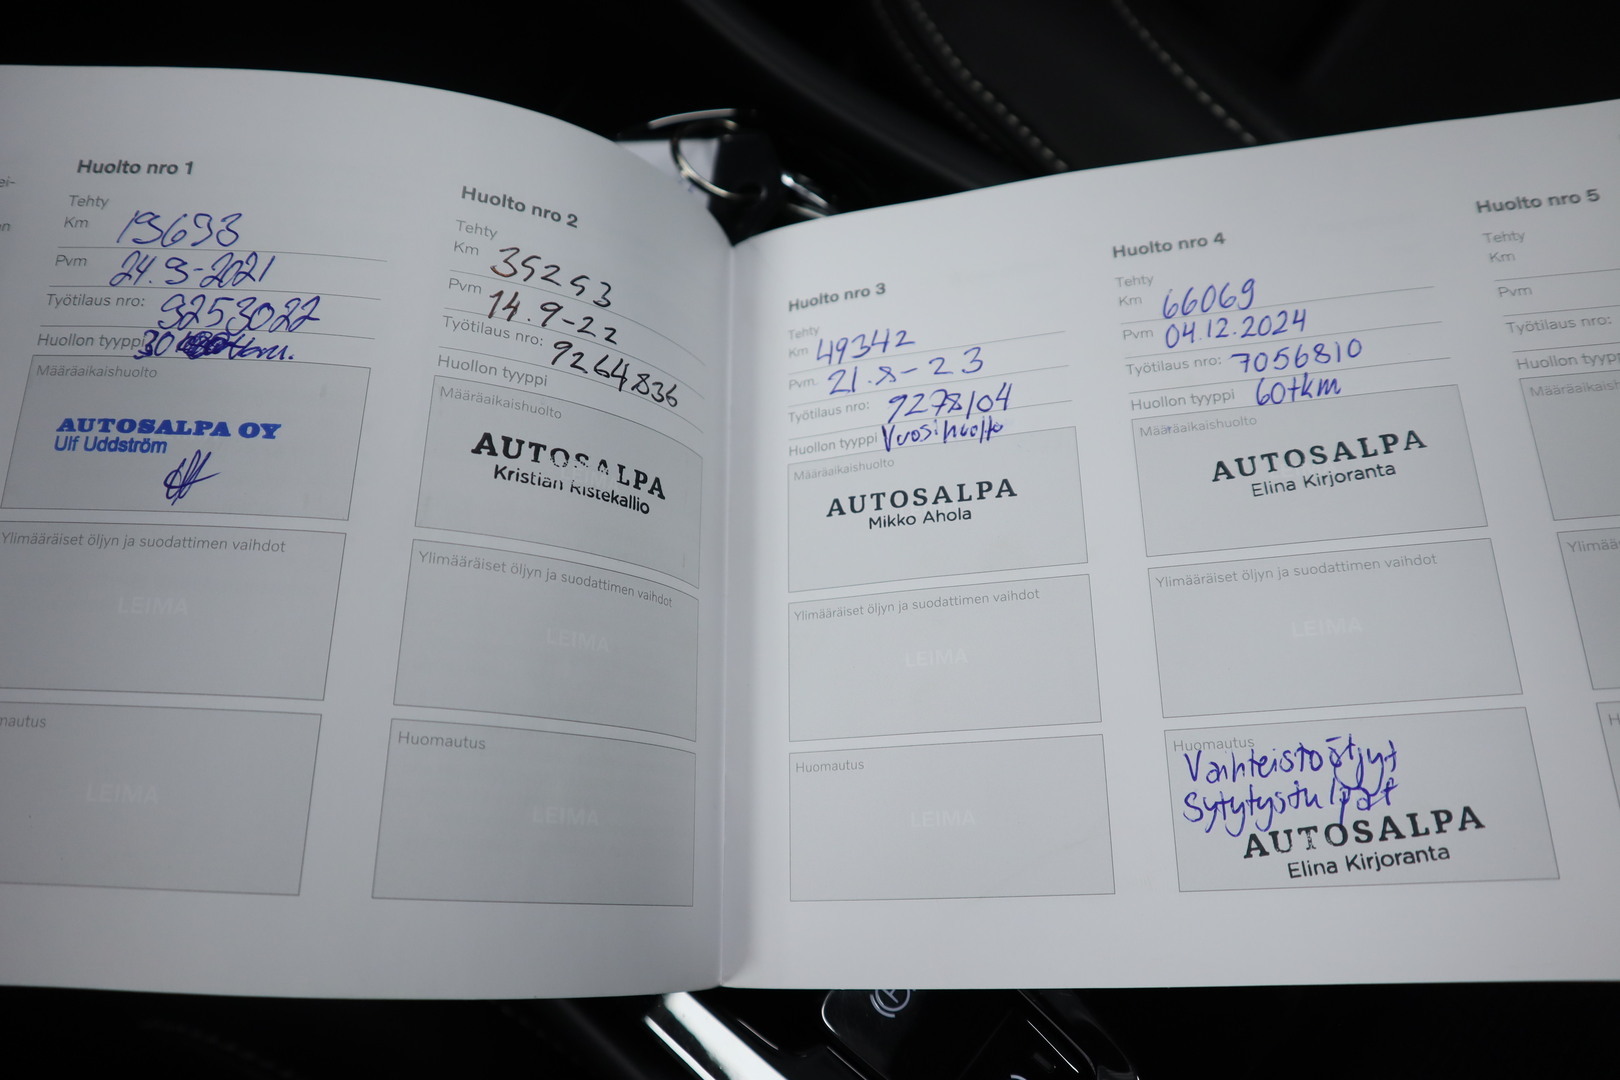 ei-
en
Huolto nro 1
Tehty
Km 19693
Pvm 24.9-2021
Työtilaus nro: 9253022
Huollon tyyppi 30 tkm.
Määräaikaishuolto
AUTOSALPA OY
Ulf Uddström
Ylimääräiset öljyn ja suodattimen vaihdot
LEIMA
mautus
LEIMA
Huolto nro 2
Tehty
Km 35253
Pvm 14.9-22
Työtilaus nro: 9264836
Huollon tyyppi
Määräaikaishuolto
AUTOSALPA
Kristian Ristekallio
Ylimääräiset öljyn ja suodattimen vaihdot
LEIMA
Huomautus
LEIMA
Huolto nro 3
Tehty
Km 49342
Pvm 21.8-23
Työtilaus nro: 9278104
Huollon tyyppi Vuosihuolto
Määräaikaishuolto
AUTOSALPA
Mikko Ahola
Ylimääräiset öljyn ja suodattimen vaihdot
LEIMA
Huomautus
LEIMA
Huolto nro 4
Tehty
Km 66069
Pvm 04.12.2024
Työtilaus nro: 7056810
Huollon tyyppi 60tkm
Määräaikaishuolto
AUTOSALPA
Elina Kirjoranta
Ylimääräiset öljyn ja suodattimen vaihdot
LEIMA
Huomautus
Vaihteistoöljyt
Sytytystulpat
AUTOSALPA
Elina Kirjoranta
Huolto nro 5
Tehty
Km
Pvm
Työtilaus nro:
Huollon tyypp
Määräaikaish
Ylimää
H